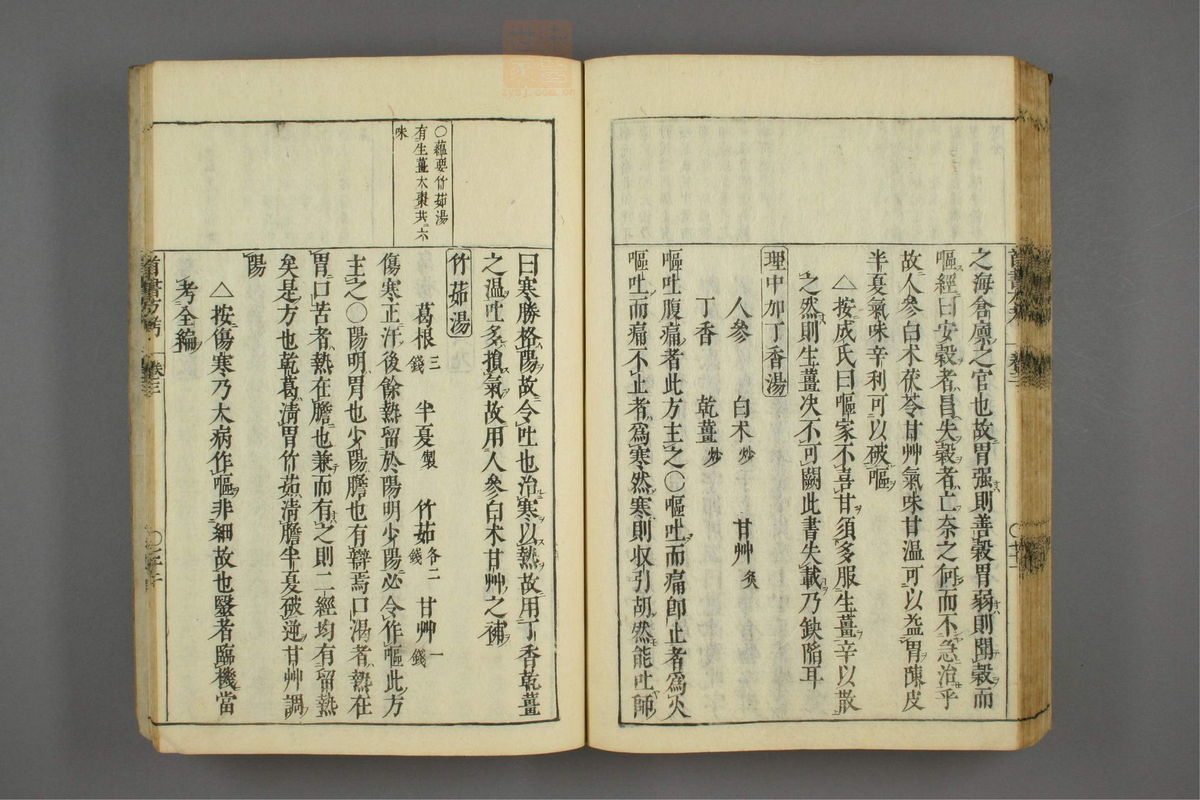 之海倉廩之官也故胃强則善穀胃弱則聞穀而
嘔經曰安穀者昌失穀者亡奈之何而不急治乎
故人參白术茯苓甘艸氣味甘温可以益胃陳皮
半夏氣味辛利可以破嘔
△按成氏曰嘔家不喜甘須多服生薑辛以散
之然則生薑决不可闕此書失載乃鈌陷耳
理中加丁香湯
人參 白术炒 甘艸炙
丁香 乾薑炒
嘔吐腹痛者此方主之〇嘔吐而痛卽止者爲火
嘔吐而痛不止者爲寒然寒則収引胡然能吐師
曰寒勝格陽故令吐也治寒以熱故用丁香乾薑
之温吐多損氣故用人參白术甘艸之補
竹茹湯
葛根三錢 半夏製 竹茹各二錢 甘艸一錢
傷寒正汗後餘熱留於陽明少陽必令作嘔此方
主之〇陽明胃也少陽膽也有辯焉口渴者熱在
胃口苦者熱在膽也兼而有之則二經均有留熱
矣是方也乾葛清胃竹茹清膽半夏破逆甘艸調
陽
△按傷寒乃大病作嘔非細故也醫者臨機當
考全編
〇蘊要竹茹湯
有生薑大棗共六
味
首書方考 卷三